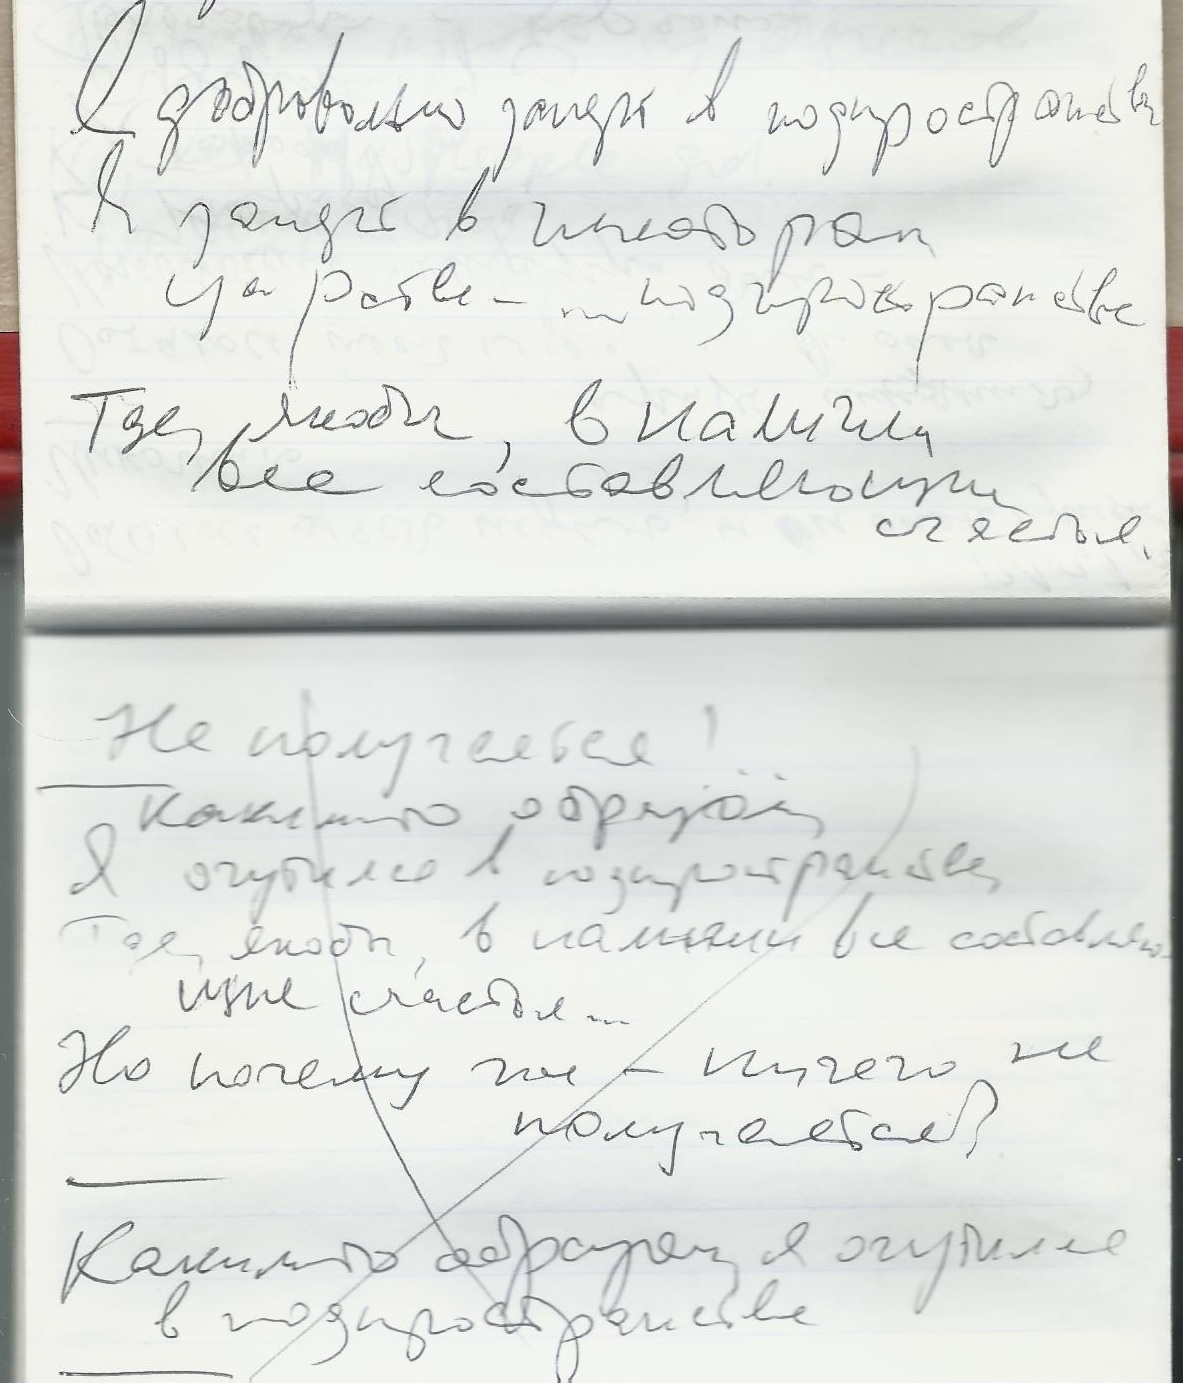 Я добровольно заперт в подпространстве
Я заперт в некотором
царстве - ... подпространстве
Где, якобы, в наличии
все составляющие
счастья.
Не получается!
Каким-то образом
Я очутился в подпространстве,
Где, якобы, в наличии все составляю-
щие счастья...
Но почему же - ничего не
получается?
Каким-то образом я очутился
в подпространстве